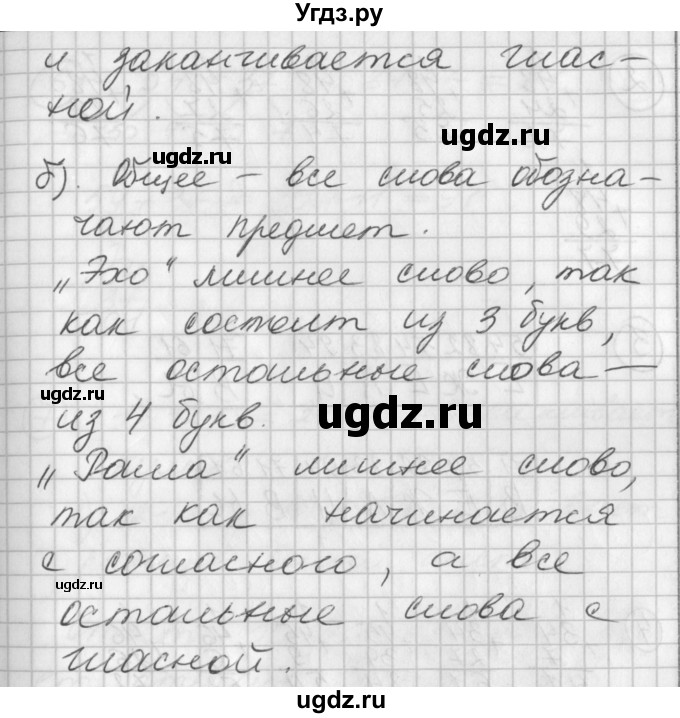 Угдз.ру
и заканчивается глас-
ной.
ugdz.ru
б). Общее – все слова обозна-
чают предмет.
„Эхо“ лишнее слово, так
как состоит из 3 букв,
все остальные слова —
ugdz.ru
ugdz.ru
из 4 букв.
„Рама“ лишнее слово,
так как начинается
с согласного, а все
ugdz.ru
остальные слова с
гласной.
ugdz.ru